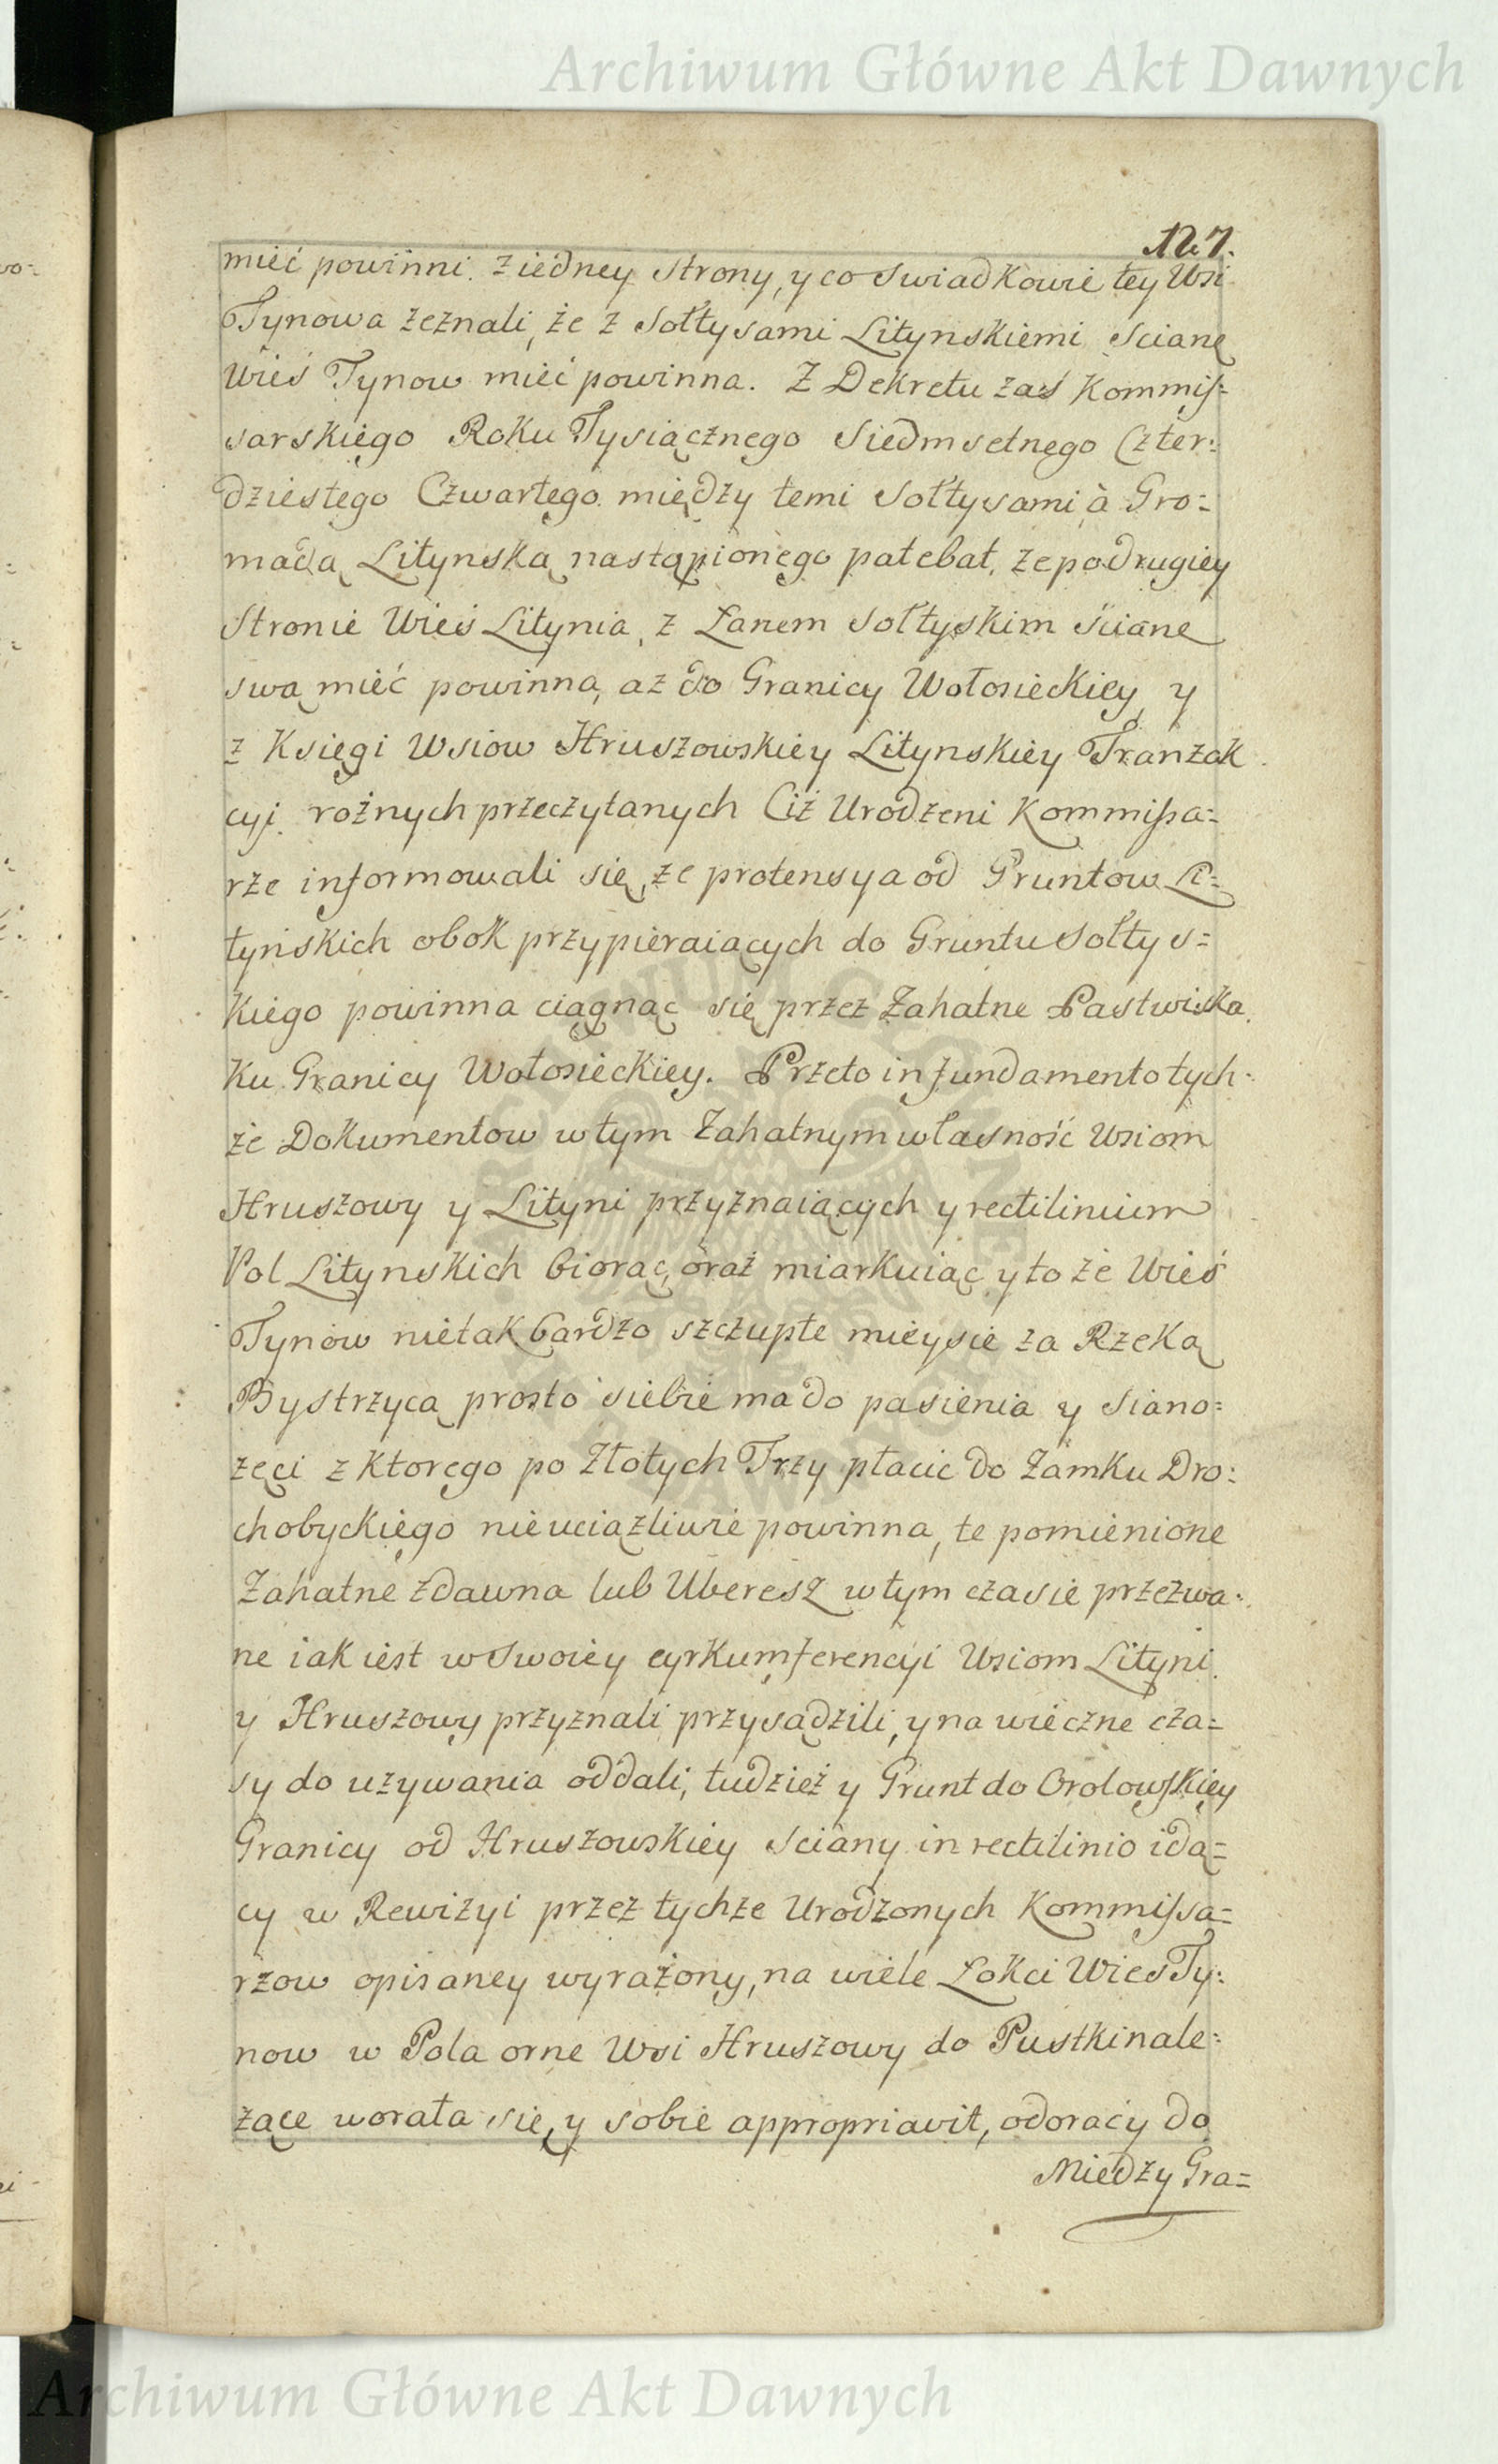 Archiwum Główne Akt Dawnych
127.
mieć powinni z iedney strony, y co swiadkowie tey Wsi
Tynowa zeznali, że z Sołtysami Litynskiemi Scianę
Wieś Tynow mieć powinna. Z Dekretu zaś Kommis=
sarskiego Roku Tysiącznego Siedmsetnego Czter=
dziestego Czwartego między temi Sołtysami à Gro=
madą Litynską nastąpionego patebat, że po drugiey
Stronie Wieś Litynia, z Łanem Sołtyskim sciane
swą mieć powinna, aż do Granicy Wołosieckiey, y
z Księgi Wsiow Hruszowskiey Litynskiey Tranzak
cyi rożnych przeczytanych Ciż Urodzeni Kommissa=
rże informowali się, że protensya od Gruntow Li=
tyńskich obok przypieraiących do Gruntu Sołtys=
kiego powinna ciągnąc się przez Zahatne Pastwiska
ku Granicy Wołosieckiey. Przeto in fundamento tych=
że Dokumentow w tym Zahatnym własność Wsiom
Hruszowy y Lityni przyznaiących y rectilinium
Pol Litynskich biorąc, oraż miarkuiąc y to że Wieś
Tynow nietak bardzo szczupłe mieysie za Rzeką
Bystrzycą prosto siebie ma do pasienia y siano=
zęci z ktorego po Złotych Trzy płacic do Zamku Dro=
chobyckiego nieuciązliwie powinna, te pomienione
Zahatne zdawna lub Uberesz w tym czasie przezwa=
ne iak iest w swoiey cyrkumferencyi Wsiom Lityni
y Hruszowy przyznali przysądzili, y na wieczne cza=
sy do używania oddali, tudzież y Grunt do Orolowskiey
Granicy od Hruszowskiey sciany in rectilinio idą=
cy w Rewizyi przez tychże Urodzonych Kommissa=
rzow opisaney wyrażony, na wiele Łokci Wies Ty=
now w Pola orne Wsi Hruszowy do Pustki nale=
żące worała się, y sobie appropriavit, odoracy do
Miedzy Gra=
Archiwum Główne Akt Dawnych